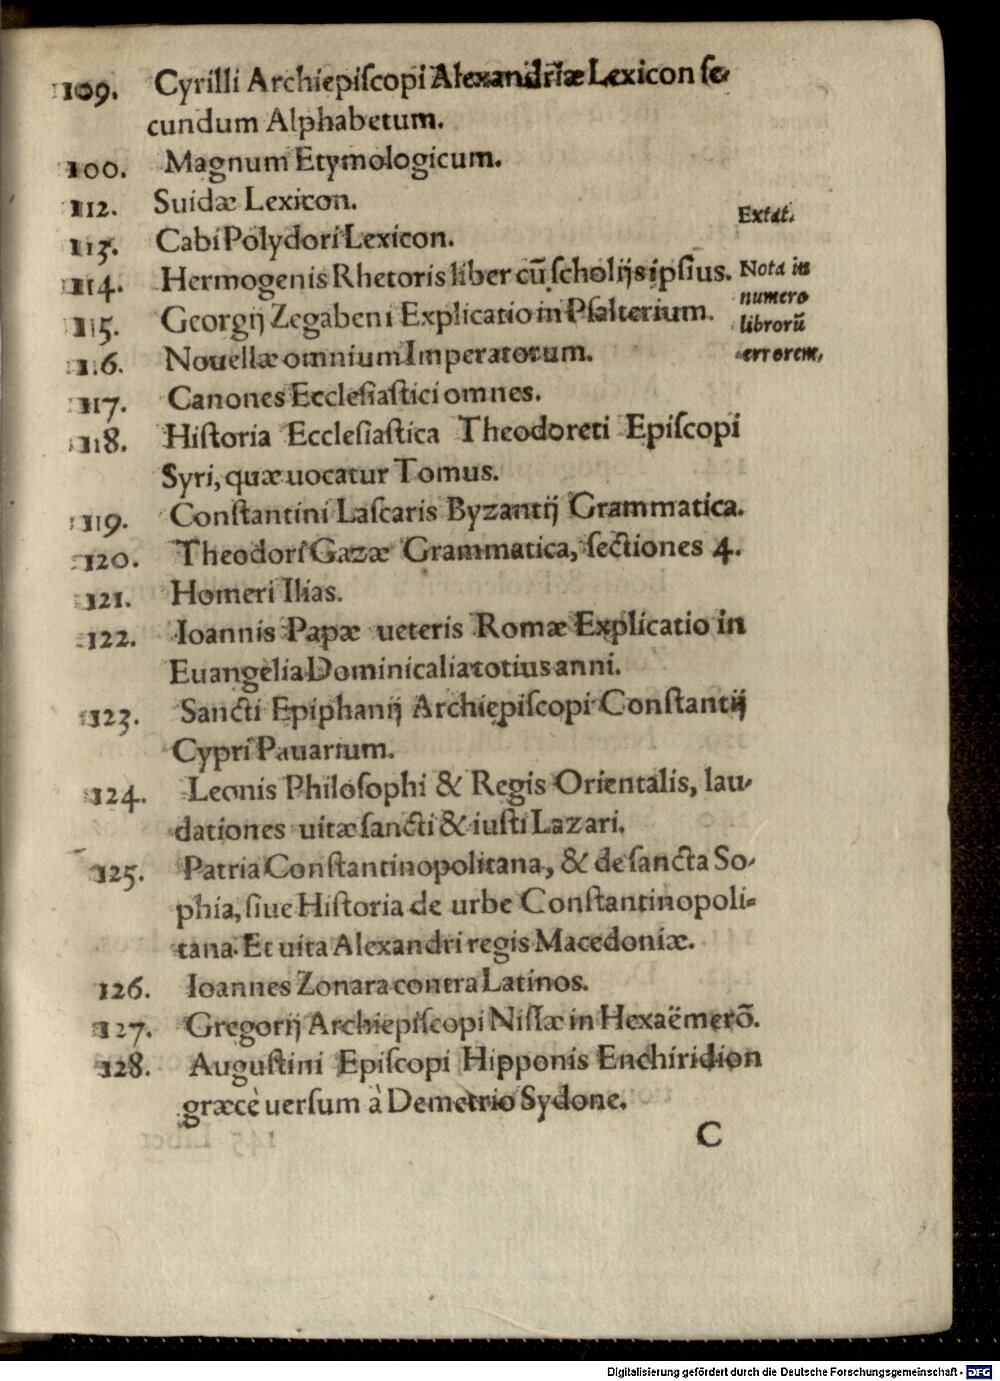 109. Cyrilli Archiepiſcopi Alexandriæ Lexicon ſe-
cundum Alphabetum.
100. Magnum Etymologicum.
112. Suidæ Lexicon.
Extat.
113. Cabi Polydori Lexicon.
114. Hermogenis Rhetoris liber cũ ſcholijs ipſius.
Nota in
numero
librorũ
errorem,
115. Georgij Zegabeni Explicatio in Pſalterium.
116. Nouellæ omnium Imperatorum.
117. Canones Eccleſiaſtici omnes.
118. Hiſtoria Eccleſiaſtica Theodoreti Epiſcopi
Syri, quæ uocatur Tomus.
119. Conſtantini Laſcaris Byzantij Grammatica.
120. Theodori Gazæ Grammatica, ſectiones 4.
121. Homeri Ilias.
122. Ioannis Papæ ueteris Romæ Explicatio in
Euangelia Dominicalia totius anni.
123. Sancti Epiphanij Archiepiſcopi Conſtantij
Cypri Pauarium.
124. Leonis Philoſophi & Regis Orientalis, lau-
dationes uitæ ſancti & iuſti Lazari.
125. Patria Conſtantinopolitana, & de ſancta So-
phia, ſiue Hiſtoria de urbe Conſtantinopoli-
tana. Et uita Alexandri regis Macedoniæ.
126. Ioannes Zonara contra Latinos.
127. Gregorij Archiepiſcopi Niſſæ in Hexaëmerõ.
128. Auguſtini Epiſcopi Hipponis Enchiridion
græcè uerſum à Demetrio Sydone.
C
Digitalisierung gefördert durch die Deutsche Forschungsgemeinschaft - DFG